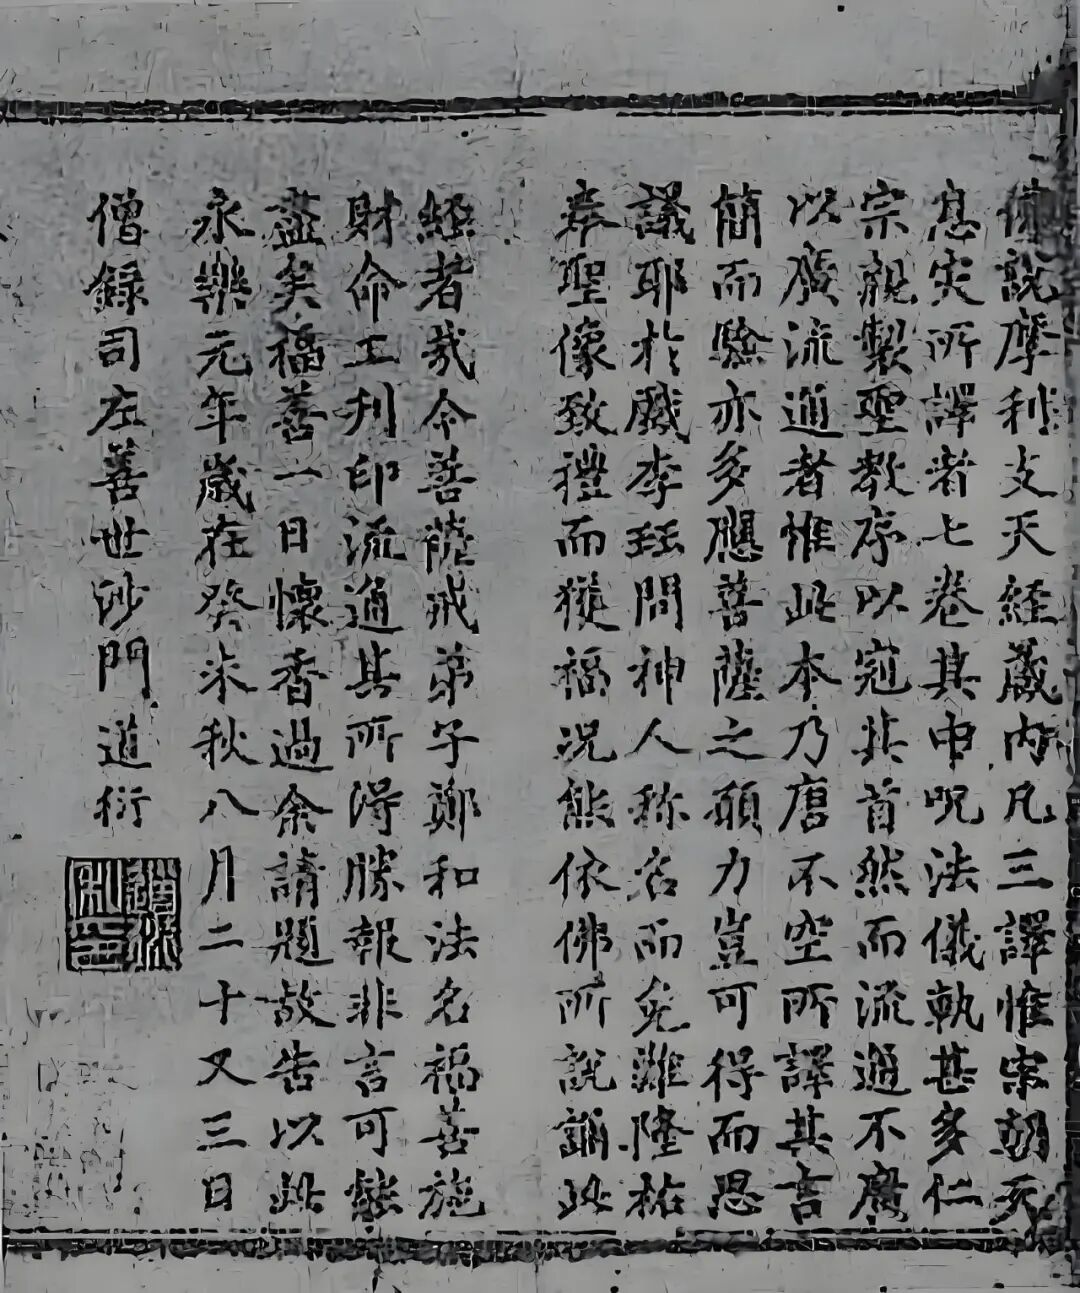 佛說摩利支天經藏內凡三譯惟宋朝天
息灾所譯者七卷其中呪法儀軌甚多仁
宗親製聖教序以冠其首然而流通不廣
以廣流通者惟此本乃唐不空所譯其言
簡而驗亦多應菩薩之願力豈可得而思
議耶於戲李珏問神人称名而免難隆祐
奉聖像致禮而獲福況能依佛所說誦此
經者哉今菩薩戒弟子鄭和法名福善施
財命工刋印流通其所得勝報非言可能
盡矣福善一日懷香過余請題故告以此
永樂元年歲在癸未秋八月二十又三日
僧錄司左善世沙門道衍